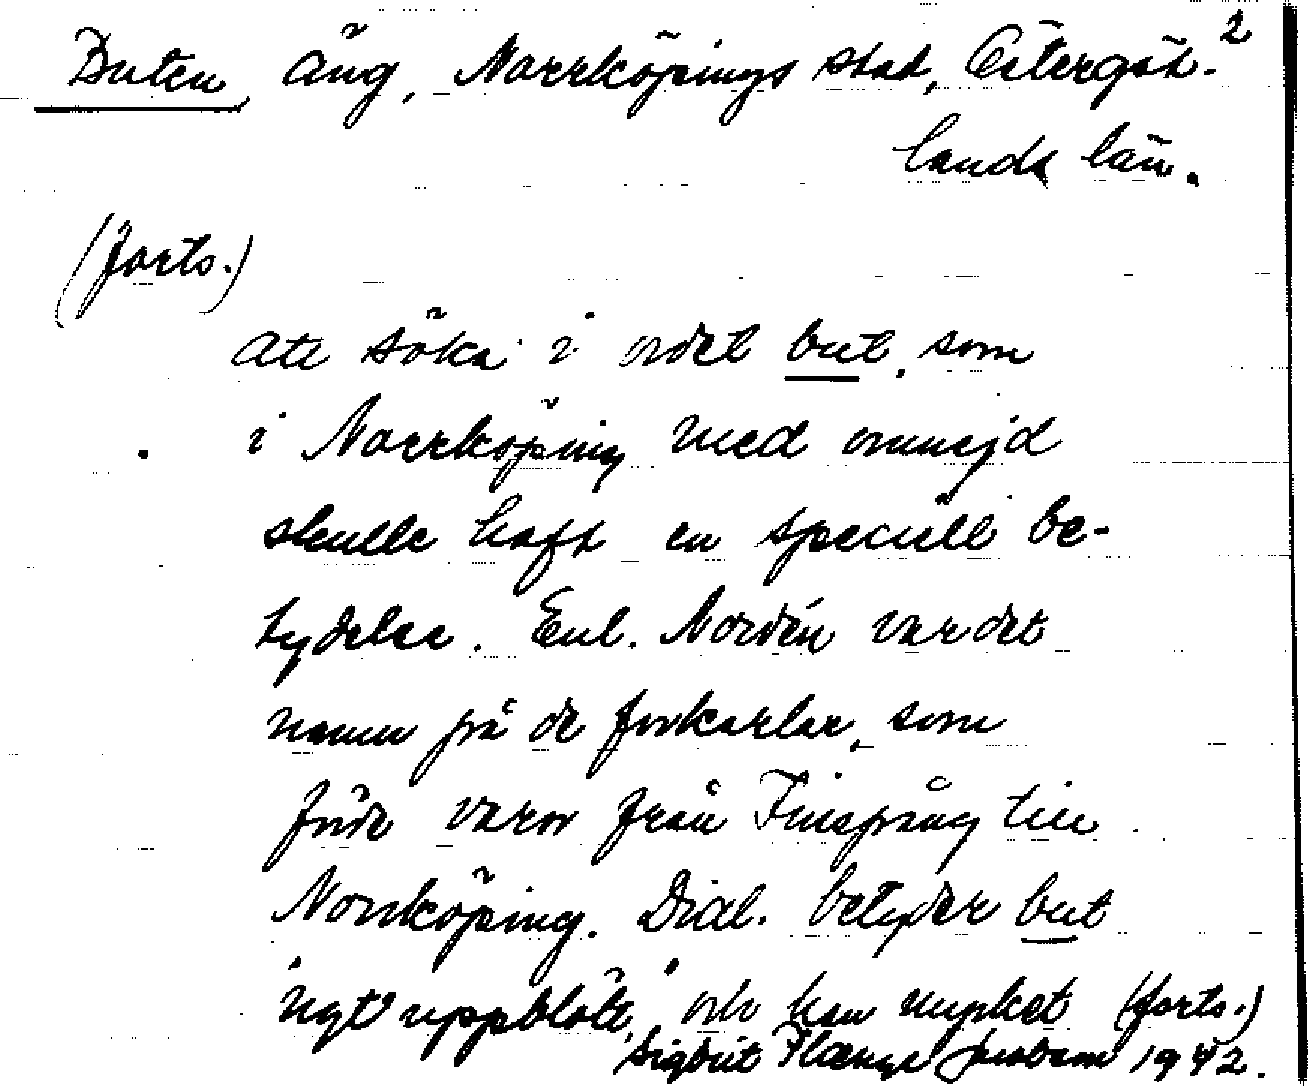 Buten, äng, Norrköpings stad, Östergöt- 2
lands län.
(forts.)
att söka i ordet but, som
i Norrköping med omnejd
skulle haft en speciell be-
tydelse. Enl. Nordén var det
namn på de forkarlar, som
förde varor från Finspång till
Norrköping. Dial. betyder but
"ngt uppblött," och kan mycket (forts.)
Sigbrit Plænge Jacobson 1942.